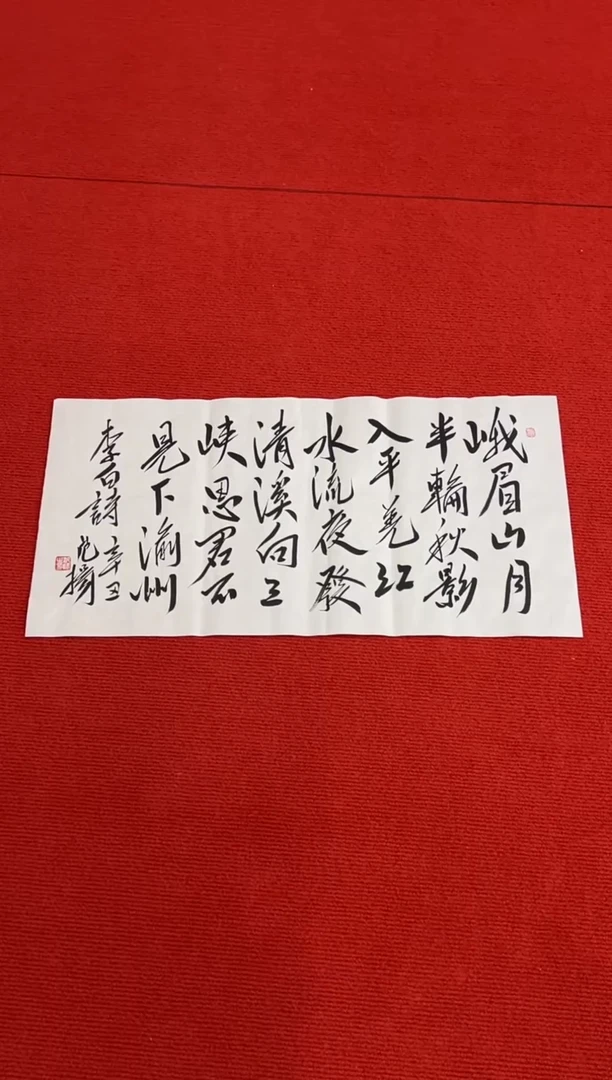 峨眉山月
半輪秋影
入平羌江
水流夜發
清溪向三
峡思君不
見下渝州
李白詩 辛丑